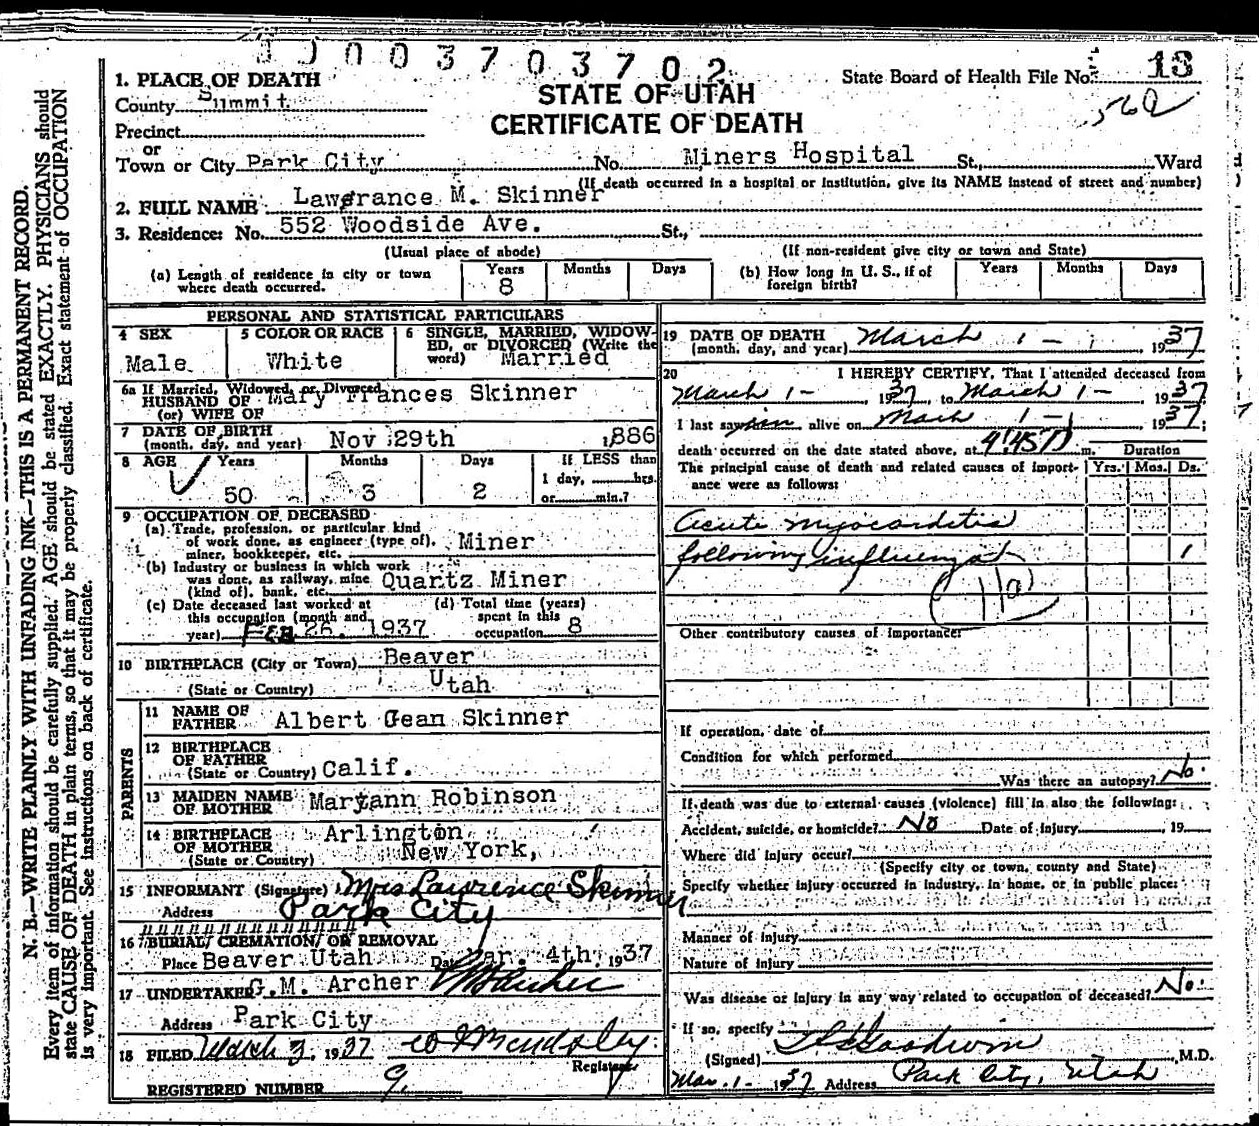 JJ00370370 2
State Board of Health File No. 13
562
1. PLACE OF DEATH
STATE OF UTAH
CERTIFICATE OF DEATH
County Summit
Precinct
or
Town or City Park City No. Miners Hospital St., Ward
(If death occurred in a hospital or institution, give its NAME instead of street and number)
2. FULL NAME Lawerance M. Skinner
3. Residence: No. 552 Woodside Ave. St.,
(Usual place of abode) (If non-resident give city or town and State)
(a) Length of residence in city or town where death occurred. Years 8 Months Days
(b) How long in U. S., if of foreign birth? Years Months Days
PERSONAL AND STATISTICAL PARTICULARS
4 SEX Male
5 COLOR OR RACE White
6 SINGLE, MARRIED, WIDOWED, or DIVORCED (Write the word) Married
6a If Married, Widowed, or Divorced
HUSBAND OF Mary Frances Skinner
(or) WIFE OF
7 DATE OF BIRTH
(month, day, and year) Nov 29th 1886
8 AGE Years 50 Months 3 Days 2 If LESS than 1 day, hrs. or min.?
9 OCCUPATION OF DECEASED
(a) Trade, profession, or particular kind
of work done, as engineer (type of),
miner, bookkeeper, etc. Miner
(b) Industry or business in which work
was done, as railway, mine
(kind of), bank, etc. Quartz Miner
(c) Date deceased last worked at this occupation (month and year) FEB 26. 1937
(d) Total time (years) spent in this occupation 8
10 BIRTHPLACE (City or Town) Beaver
(State or Country) Utah
PARENTS
11 NAME OF FATHER Albert Gean Skinner
12 BIRTHPLACE OF FATHER
(State or Country) Calif.
13 MAIDEN NAME OF MOTHER Maryann Robinson
14 BIRTHPLACE OF MOTHER Arlington
(State or Country) New York,
15 INFORMANT (Signature) Mrs Lawrence Skinner
Address Park City
################
16 BURIAL, CREMATION, OR REMOVAL
Place Beaver Utah Date Mar. 4th, 1937
17 UNDERTAKER G.M. Archer
Address Park City
18 FILED March 3, 1937
Registrar
REGISTERED NUMBER 9.
19 DATE OF DEATH
(month, day, and year) March 1 - 1937
20 I HEREBY CERTIFY, That I attended deceased from
March 1 - 1937, to March 1 - 1937
I last saw him alive on March 1 - 1937;
death occurred on the date stated above, at 4:45 P m.
Duration
The principal cause of death and related causes of importance were as follows: Yrs. Mos. Ds.
Acute myocarditis
following influenza 1
(11a)
Other contributory causes of importance:
If operation, date of
Condition for which performed
Was there an autopsy? No.
If death was due to external causes (violence) fill in also the following:
Accident, suicide, or homicide? No Date of injury 19
Where did injury occur?
(Specify city or town, county and State)
Specify whether injury occurred in industry, in home, or in public place:
Manner of injury
Nature of injury
Was disease or injury in any way related to occupation of deceased? No.
If so, specify
(Signed) M.D.
Mar. 1 - 1937 Address Park City, Utah
N. B.—WRITE PLAINLY WITH UNFADING INK—THIS IS A PERMANENT RECORD.
Every item of information should be carefully supplied. AGE should be stated EXACTLY. PHYSICIANS should
state CAUSE OF DEATH in plain terms, so that it may be properly classified. Exact statement of OCCUPATION
is very important. See instructions on back of certificate.